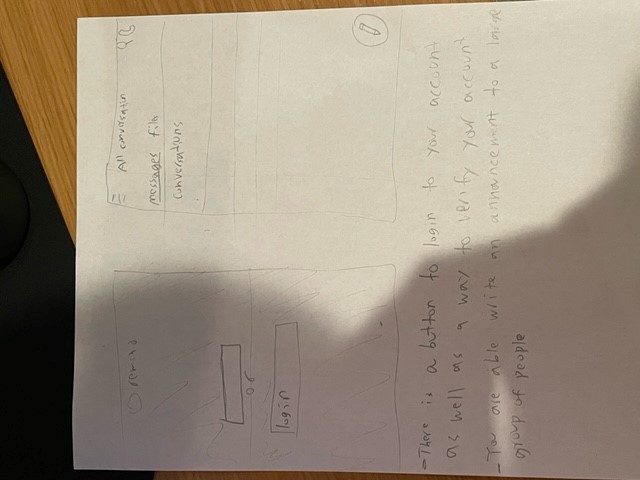 remind
or
login
All conversation
messages files
conversations
- There is a button to login to your account
as well as a way to verify your account
- You are able write an annancement to a large
group of people